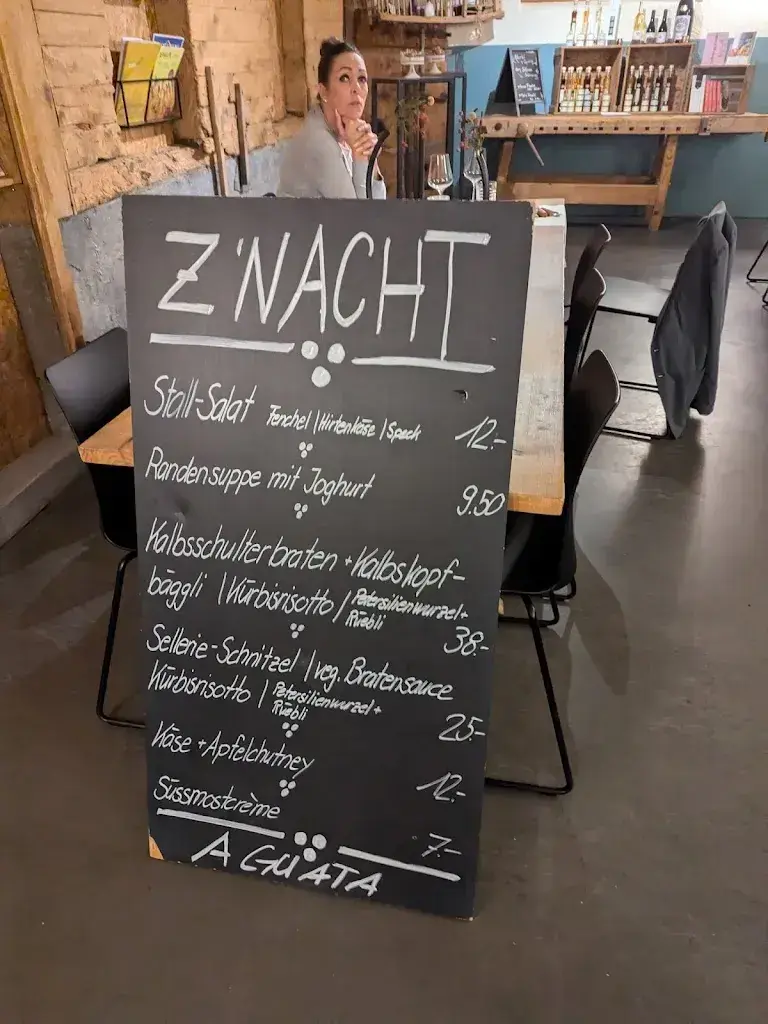 Z'NACHT
Stall-Salat Fenchel | Hirtenkäse | Speck 12.-
Randensuppe mit Joghurt
9.50
Kalbsschulterbraten + Kalbskopf-
bäggli | Kürbisrisotto / Petersilienwurzel +
Rüebli
38.-
Sellerie-Schnitzel | veg. Bratensauce
Kürbisrisotto | Petersilienwurzel +
Rüebli
25.-
Käse + Apfelchutney
12.-
Süssmostcrème
7.-
A GUATA